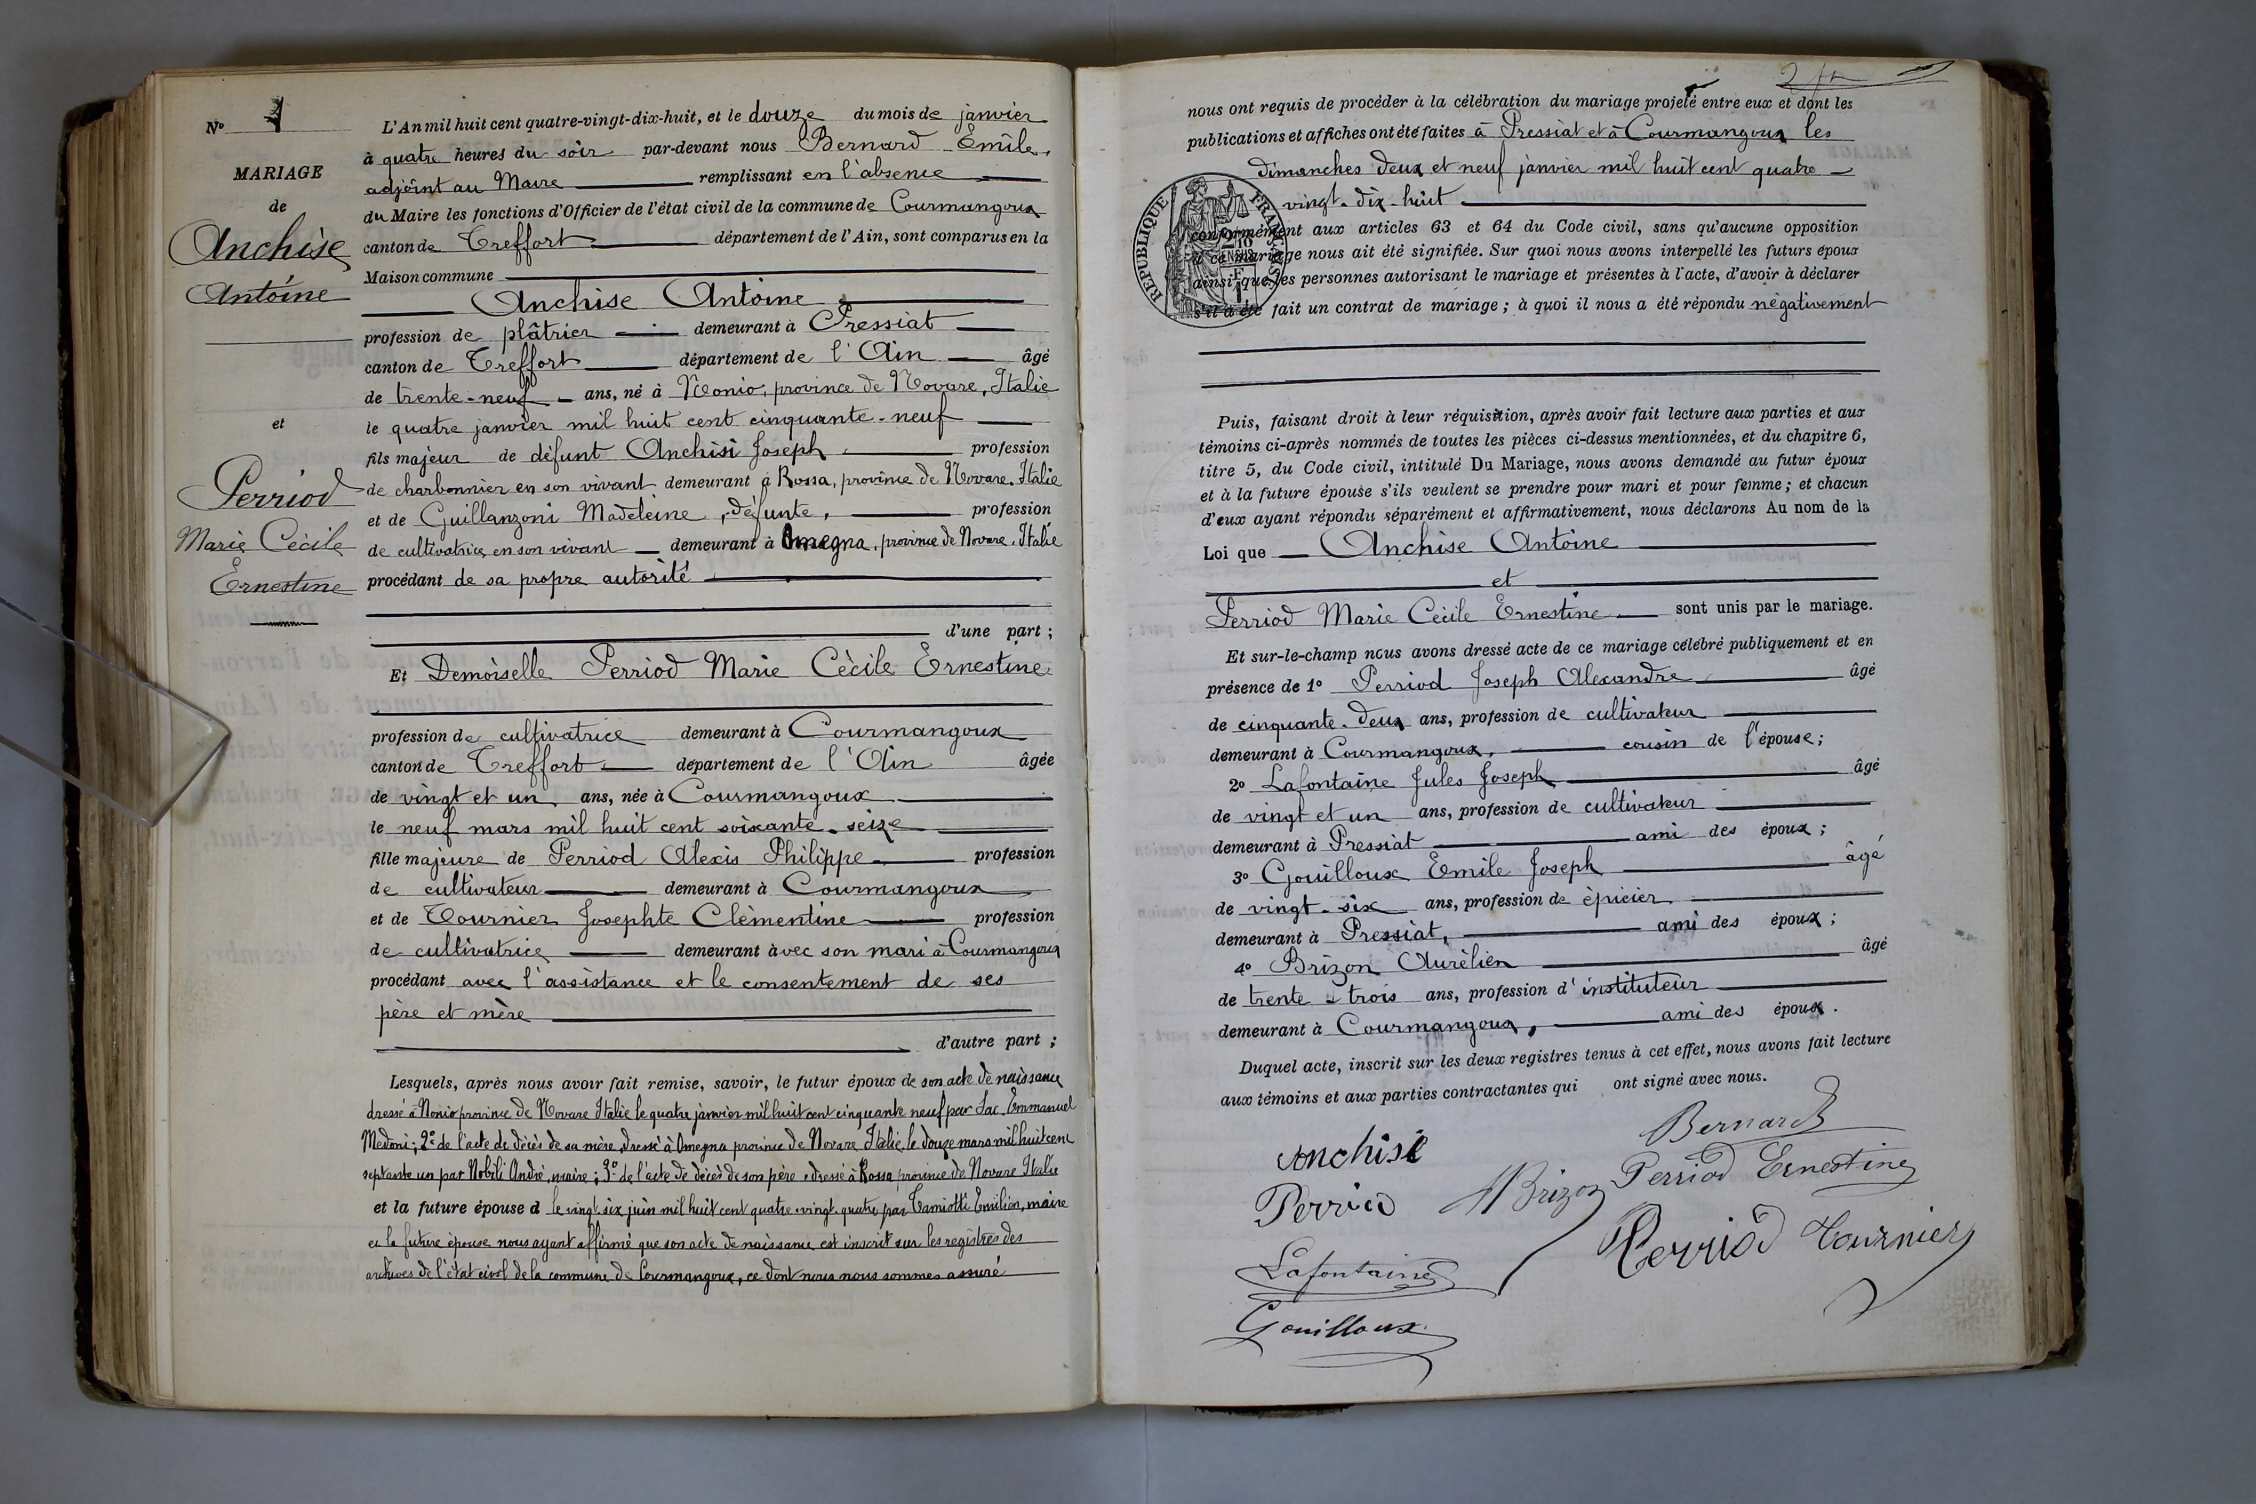 N° 1
MARIAGE
de
Anchise
Antoine
et
Perriod
Marie Cécile
Ernestine
L'An mil huit cent quatre-vingt-dix-huit, et le douze du mois de janvier
à quatre heures du soir par-devant nous Bernard Emile,
adjoint au Maire remplissant en l'absence
du Maire les fonctions d'Officier de l'état civil de la commune de Courmangoux
canton de Treffort département de l'Ain, sont comparus en la
Maison commune
Anchise Antoine
profession de plâtrier demeurant à Pressiat
canton de Treffort département de l'Ain âgé
de trente-neuf ans, né à Nonio, province de Novare, Italie
le quatre janvier mil huit cent cinquante-neuf
fils majeur de défunt Anchisi Joseph, profession
de charbonnier en son vivant demeurant à Rossa, province de Novare, Italie
et de Guillanzoni Madeleine, défunte, profession
de cultivatrice en son vivant demeurant à Omegna, province de Novare, Italie
procédant de sa propre autorité
d'une part ;
Et Demoiselle Perriod Marie Cécile Ernestine
profession de cultivatrice demeurant à Courmangoux
canton de Treffort département de l'Ain âgée
de vingt et un ans, née à Courmangoux
le neuf mars mil huit cent soixante-seize
fille majeure de Perriod Alexis Philippe profession
de cultivateur demeurant à Courmangoux
et de Tournier Josephte Clémentine profession
de cultivatrice demeurant avec son mari à Courmangoux
procédant avec l'assistance et le consentement de ses
père et mère
d'autre part ;
Lesquels, après nous avoir fait remise, savoir, le futur époux de son acte de naissance
dressé à Nonio province de Novare Italie le quatre janvier mil huit cent cinquante neuf par Sac. Emmanuel
Medoni ; 2° de l'acte de décès de sa mère, dressé à Omegna province de Novare, Italie, le douze mars mil huit cent
septante un par Nobili André, maire ; 3° de l'acte de décès de son père, dressé à Rossa, province de Novare Italie
et la future épouse d le vingt six juin mil huit cent quatre-vingt-quatre par Tamiotti Emilien, maire
et la future épouse nous ayant affirmé que son acte de naissance est inscrit sur les registres des
archives de l'état civil de la commune de Courmangoux, ce dont nous nous sommes assuré
2
nous ont requis de procéder à la célébration du mariage projeté entre eux et dont les
publications et affiches ont été faites à Pressiat et à Courmangoux les
dimanches deux et neuf janvier mil huit cent quatre-
vingt-dix-huit
REPUBLIQUE FRANÇAISE
conformément aux articles 63 et 64 du Code civil, sans qu'aucune opposition
à ce mariage nous ait été signifiée. Sur quoi nous avons interpellé les futurs époux
ainsi que les personnes autorisant le mariage et présentes à l'acte, d'avoir à déclarer
s'il a été fait un contrat de mariage ; à quoi il nous a été répondu négativement
Puis, faisant droit à leur réquisition, après avoir fait lecture aux parties et aux
témoins ci-après nommés de toutes les pièces ci-dessus mentionnées, et du chapitre 6,
titre 5, du Code civil, intitulé Du Mariage, nous avons demandé au futur époux
et à la future épouse s'ils veulent se prendre pour mari et pour femme ; et chacun
d'eux ayant répondu séparément et affirmativement, nous déclarons Au nom de la
Loi que Anchise Antoine
et
Perriod Marie Cécile Ernestine sont unis par le mariage.
Et sur-le-champ nous avons dressé acte de ce mariage célébré publiquement et en
présence de 1° Perriod Joseph Alexandre âgé
de cinquante-deux ans, profession de cultivateur
demeurant à Courmangoux, cousin de l'épouse ;
2° Lafontaine Jules Joseph âgé
de vingt et un ans, profession de cultivateur
demeurant à Pressiat ami des époux ;
3° Gouilloux Emile Joseph âgé
de vingt-six ans, profession de épicier
demeurant à Pressiat, ami des époux ;
4° Brizon Aurélien âgé
de trente-trois ans, profession d'instituteur
demeurant à Courmangoux, ami des époux.
Duquel acte, inscrit sur les deux registres tenus à cet effet, nous avons fait lecture
aux témoins et aux parties contractantes qui ont signé avec nous.
Bernard
Anchisi
Perriod Ernestine
Perriod
ABrizon
Perriod Tournier
Lafontaine
Gouilloux